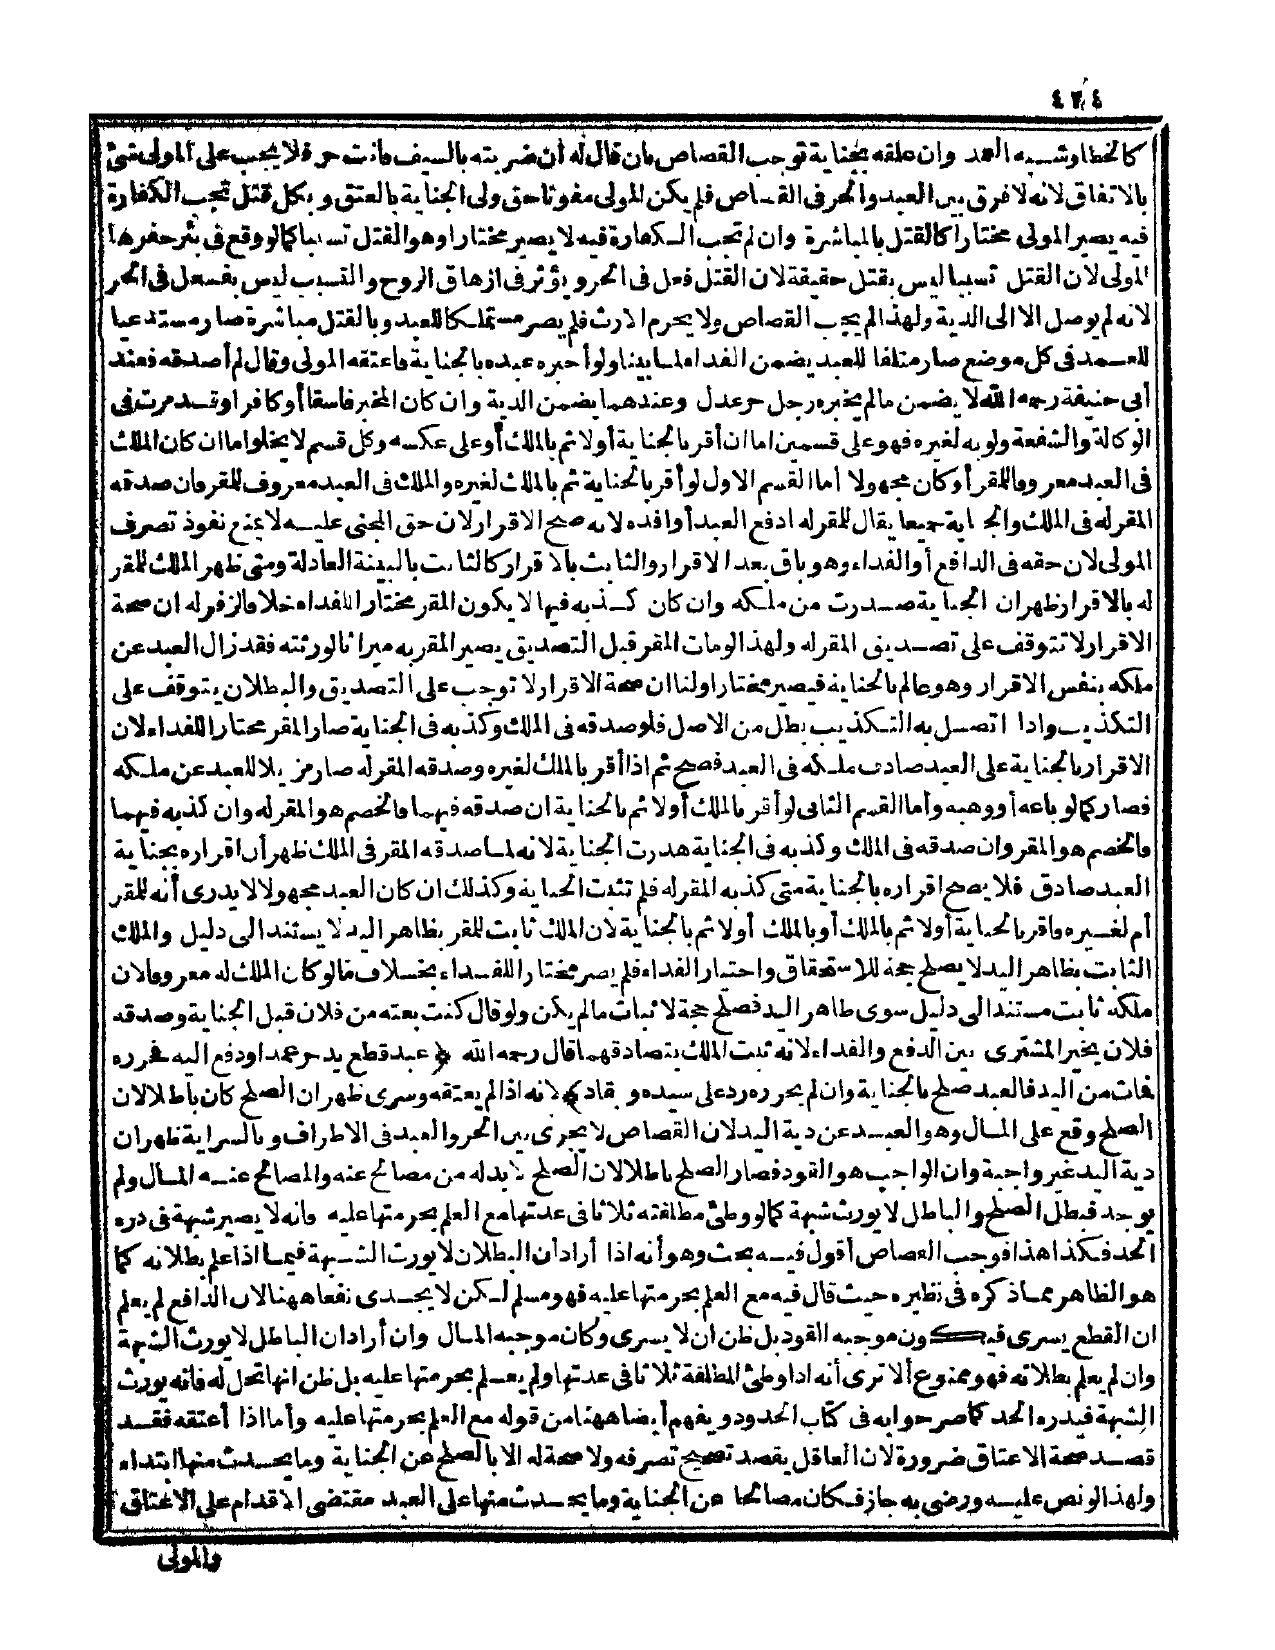 ٤٢٤
كالخطا وشبه العمد وان علقه بجناية توجب القصاص بان قال له ان ضربته بالسيف فانت حر فلا يجب على المولى شئ
بالاتفاق لانه لا فرق بين العبد والحر فى القصاص فلم يكن المولى مفوتا حق ولى الجناية بالعتق و بكل قتل تجب الكفارة
فيه يصير المولى مختارا كالقتل بالمباشرة وان لم تجب الكفارة فيه لا يصير مختارا وهو القتل تسببا كما لو وقع فى بئر حفرها
المولى لان القتل تسببا ليس بقتل حقيقة لان القتل فعل فى الحر و يؤثر فى ازهاق الروح والتسبب ليس بفعل فى الحر
لانه لم يوصل الا الى الدية ولهذا لم يجب القصاص ولا يحرم الارث فلم يصر مستملكا للعبد و بالقتل مباشرة صار مستدعيا
للعمد فى كل موضع صار متلفا للعبد يضمن الفداء لما بينا ولو أخبره عبده بالجناية فاعتقه المولى وقال لم أصدقه فعند
أبى حنيفة رحمه الله لا يضمن مالم يخبره رجل حر عدل وعندهما يضمن الدية وان كان المخبر فاسقا أو كافرا وقد مرت فى
الوكالة والشفعة ولو به لغيره فهو على قسمين اما ان أقر بالجناية أولا ثم بالملك أو على عكسه وكل قسم لا يخلو اما ان كان الملك
فى العبد معروفا للمقر أو كان مجهولا أما القسم الاول لو أقر بالجناية ثم بالملك لغيره والملك فى العبد معروف للمقر فان صدقه
المقر له فى الملك والجناية جميعا يقال للمقر له ادفع العبد أو افده لانه صح الاقرار لان حق المجنى عليه لا يمنع نفوذ تصرف
المولى لان حقه فى الدافع أو الفداء وهو باق بعد الاقرار والثابت بالاقرار كالثابت بالبينة العادلة ومتى ظهر الملك للمقر
له بالاقرار ظهر ان الجناية صدرت من ملكه وان كان كذبه فيها لا يكون المقر مختارا للفداء خلافا لزفر له ان صحة
الاقرار لا تتوقف على تصديق المقر له ولهذا لو مات المقر قبل التصديق يصير المقر به ميراثا لورثته فقد زال العبد عن
ملكه بنفس الاقرار وهو عالم بالجناية فيصير مختارا ولنا ان صحة الاقرار لا توجب على التصديق والبطلان يتوقف على
التكذيب واذا اتصل به التكذيب بطل من الاصل فلو صدقه فى الملك وكذبه فى الجناية صار المقر مختارا للفداء لان
الاقرار بالجناية على العبد صادف ملكه فى العبد فصح ثم اذا أقر بالملك لغيره وصدقه المقر له صار مزيلا للعبد عن ملكه
فصار كما لو باعه أو وهبه وأما القسم الثانى لو أقر بالملك أولا ثم بالجناية ان صدقه فيهما فالخصم هو المقر له وان كذبه فيهما
فالخصم هو المقر وان صدقه فى الملك وكذبه فى الجناية هدرت الجناية لانه لما صدقه المقر فى الملك ظهر أن اقراره بجناية
العبد صادق فلا يصح اقراره بالجناية متى كذبه المقر له فلم تثبت الجناية وكذلك ان كان العبد مجهولا لا يدرى أنه للمقر
أم لغيره فاقر بالجناية أولا ثم بالملك أو بالملك أولا ثم بالجناية لان الملك ثابت للمقر بظاهر اليد لا يستند الى دليل والملك
الثابت بظاهر اليد لا يصلح حجة للاستحقاق واختيار الفداء فلم يصر مختارا للفداء بخلاف ما لو كان الملك له معروفا لان
ملكه ثابت مستندا لى دليل سوى ظاهر اليد فصلح حجة لاثبات مالم يكن ولو قال كنت بعته من فلان قبل الجناية وصدقه
فلان يخير المشترى بين الدفع والفداء لانه ثبت الملك بتصادقهما قال رحمه الله ﴿ عبد قطع يد حر عمدا ودفع اليه فحرره
فمات من اليد فالعبد صلح بالجناية وان لم يحرره رد على سيده و يقاد ﴾ لانه اذا لم يعتقه وسرى ظهر ان الصلح كان باطلا لان
الصلح وقع على المال وهو العبد عن دية اليد لان القصاص لا يجرى بين الحر والعبد فى الاطراف و بالسراية ظهر ان
دية اليد غير واجبة وان الواجب هو القود فصار الصلح باطلا لان الصلح لا بد له من مصالح عنه والمصالح عنه المال ولم
يوجد فبطل الصلح والباطل لا يورث شبهة كما لو وطئ مطلقته ثلاثا فى عدتها مع العلم بحرمتها عليه فانه لا يصير شبهة فى درء
الحد فكذا هذا فوجب القصاص أقول فيه بحث وهو أنه اذا أراد أن البطلان لا يورث الشبهة فيما اذا علم بطلانه كما
هو الظاهر مما ذكره فى نظيره حيث قال فيه مع العلم بحرمتها عليه فهو مسلم لكن لا يجدى نفعا ههنا لان الدافع لم يعلم
ان القطع يسرى فيكون موجبه القود بل ظن ان لا يسرى وكان موجبه المال وان أراد ان الباطل لا يورث الشبهة
وان لم يعلم بطلانه فهو ممنوع ألا ترى أنه اذا وطئ المطلقة ثلاثا فى عدتها ولم يعلم بحرمتها عليه بل ظن انها تحل له فانه يورث
الشبهة فيدرء الحد كما صرحوا به فى كتاب الحدود و يفهم أيضا ههنا من قوله مع العلم بحرمتها عليه وأما اذا أعتقه فقد
قصد صحة الاعتاق ضرورة لان العاقل يقصد تصحيح تصرفه ولا صحة له الا بالصلح عن الجناية وما يحدث منها ابتداء
ولهذا لو نص عليه ورضى به جاز فكان مصالحا عن الجناية وما يحدث منها على العبد مقتضى الاقدام على الاعتاق
والمولى